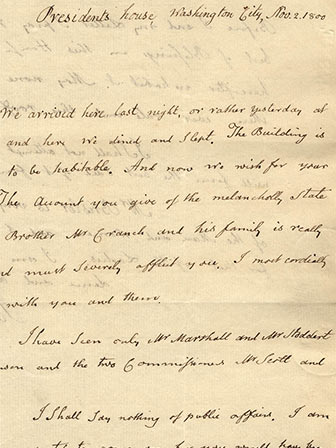 Presidents house Washington City, Nov. 2. 1800
We arrived here last night, or rather yesterday at
and here we dined and Slept. The Building is
to be habitable. And now we wish for your
The Account you give of the melancholly State
Brother Mr Cranch and his family is really
d must Severely afflict you. I most cordially
with you and them.
I have Seen only Mr Marshall and Mr Stoddert
son and the two Commissioners Mr Scott and
I Shall Say nothing of public affairs. I am